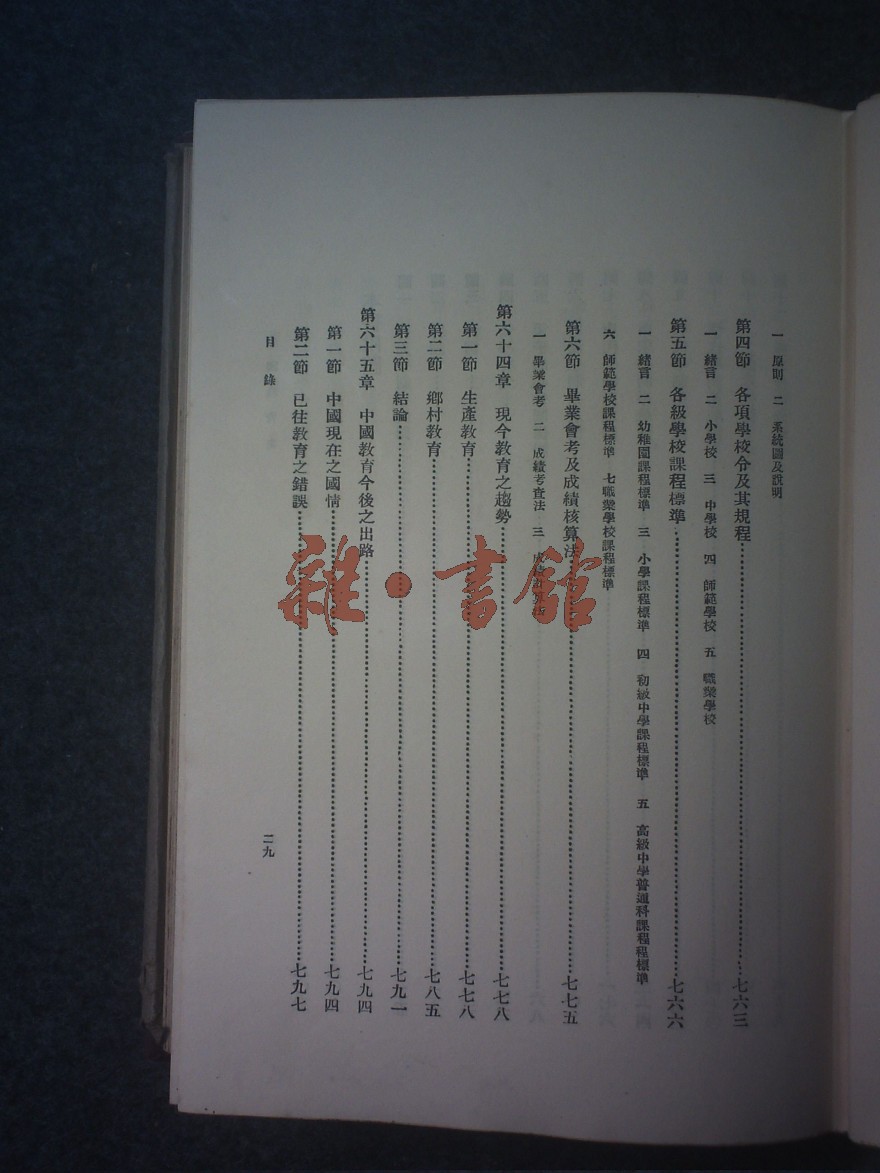 一 原則 二 系統圖及說明
第四節 各項學校令及其規程……七六三
一 緒言 二 小學校 三 中學校 四 師範學校 五 職業學校
第五節 各級學校課程標準……七六六
一 緒言 二 幼稚園課程標準 三 小學課程標準 四 初級中學課程標準 五 高級中學普通科課程程標準
六 師範學校課程標準 七職業學校課程標準
第六節 畢業會考及成績核算法……七七五
一 畢業會考 二 成績考查法 三 成績計算法
第六十四章 現今教育之趨勢……七七八
第一節 生產教育……七七八
第二節 鄉村教育……七八五
第三節 結論……七九一
第六十五章 中國教育今後之出路……七九四
第一節 中國現在之國情……七九四
第二節 已往教育之錯誤……七九七
目錄
二九
雜·書館